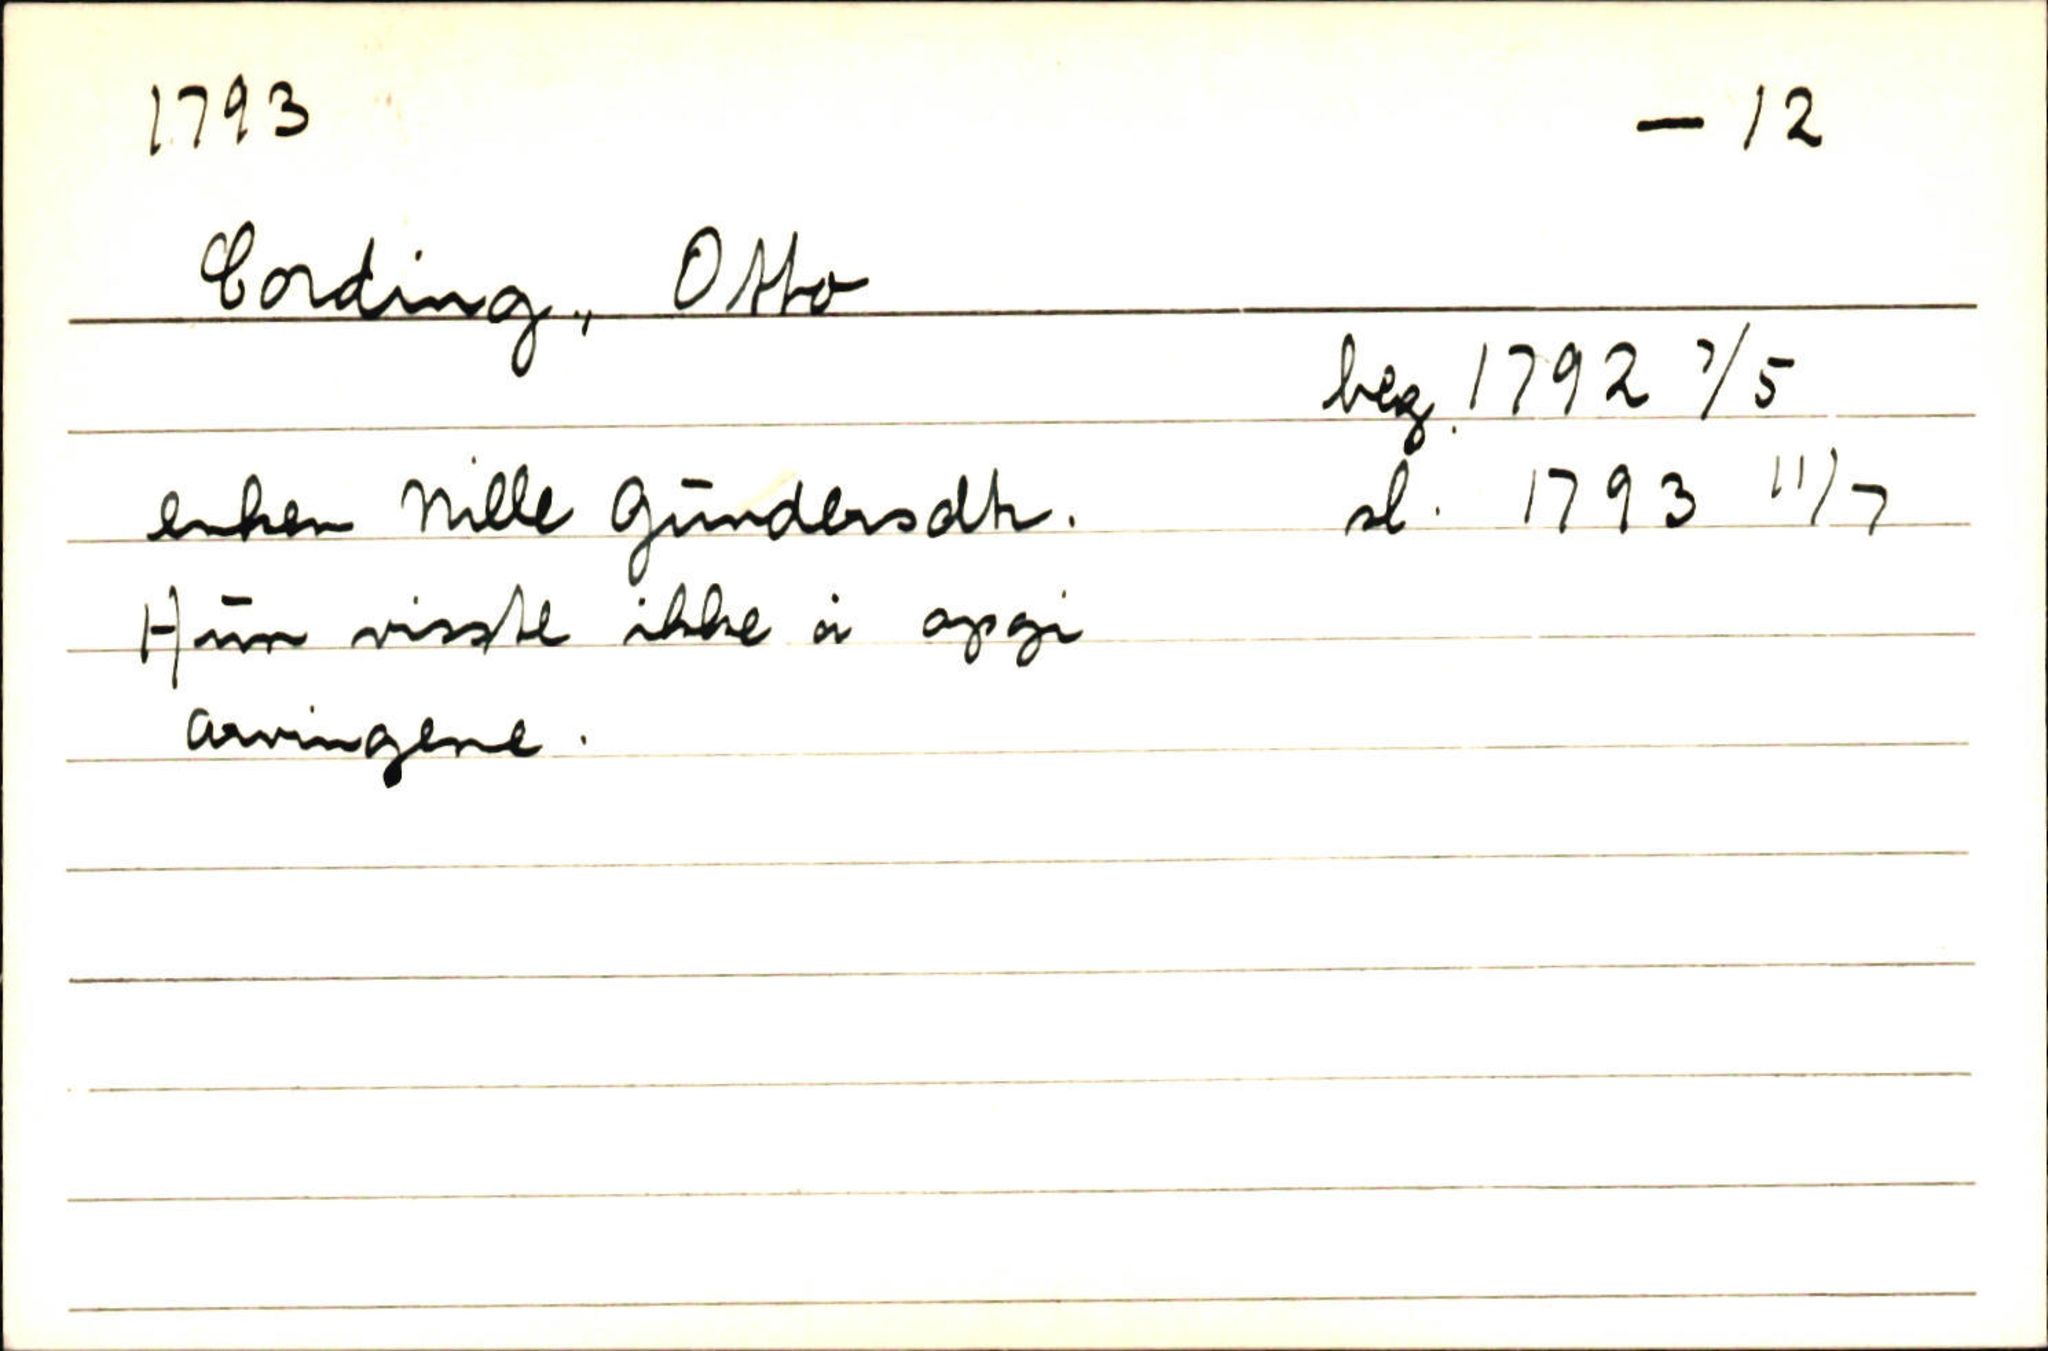 1793 — 12
Cording, Otto
beg. 1792 7/5
enken Nille Gundersdtr. sl. 1793 11/7
Hun visste ikke å opgi
arvingene.